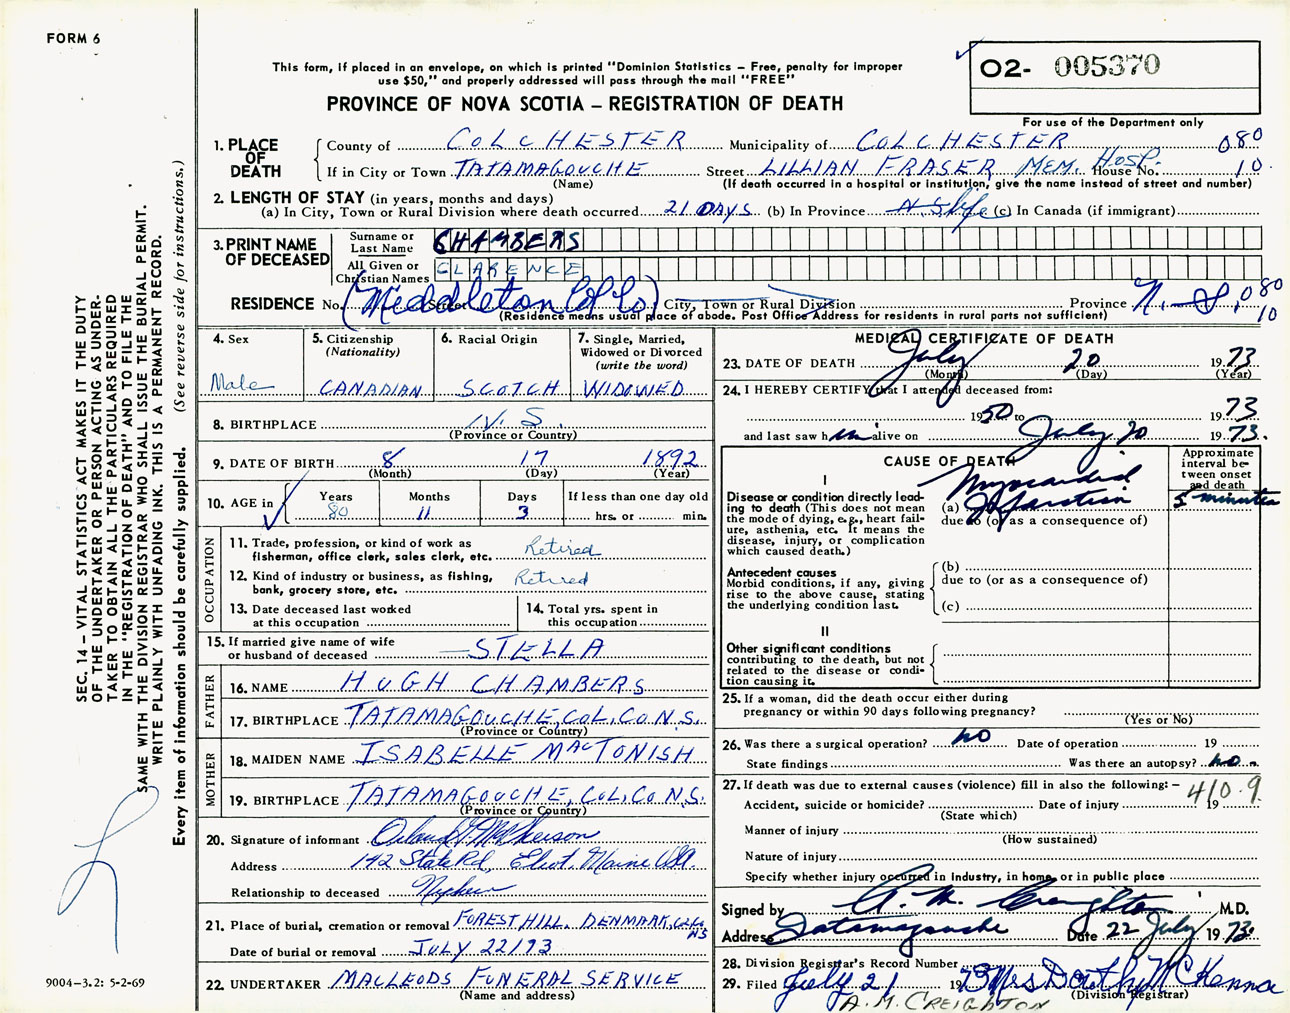 FORM 6
This form, if placed in an envelope, on which is printed "Dominion Statistics – Free, penalty for improper
use $50," and properly addressed will pass through the mail "FREE"
PROVINCE OF NOVA SCOTIA – REGISTRATION OF DEATH
O2- 005370
For use of the Department only
SEC. 14 – VITAL STATISTICS ACT MAKES IT THE DUTY
OF THE UNDERTAKER OR PERSON ACTING AS UNDER-
TAKER TO OBTAIN ALL THE PARTICULARS REQUIRED
IN THE "REGISTRATION OF DEATH" AND TO FILE THE
SAME WITH THE DIVISION REGISTRAR WHO SHALL ISSUE THE BURIAL PERMIT.
WRITE PLAINLY WITH UNFADING INK. THIS IS A PERMANENT RECORD.
Every item of information should be carefully supplied. (See reverse side for instructions.)
1. PLACE OF DEATH
County of COLCHESTER Municipality of COLCHESTER 080
If in City or Town TATAMAGOUCHE Street LILLIAN FRASER MEM. HOSP. House No. 10
(Name) (If death occurred in a hospital or institution, give the name instead of street and number)
2. LENGTH OF STAY (in years, months and days)
(a) In City, Town or Rural Division where death occurred 21 DAYS (b) In Province N.S. life (c) In Canada (if immigrant)
3. PRINT NAME OF DECEASED
Surname or Last Name CHAMBERS
All Given or Christian Names CLARENCE
RESIDENCE No. Street (Middleton Col Co) City, Town or Rural Division Province N.S. 080
10
(Residence means usual place of abode. Post Office Address for residents in rural parts not sufficient)
4. Sex Male
5. Citizenship (Nationality) CANADIAN
6. Racial Origin SCOTCH
7. Single, Married, Widowed or Divorced (write the word) WIDOWED
8. BIRTHPLACE N.S.
(Province or Country)
9. DATE OF BIRTH 8 17 1892
(Month) (Day) (Year)
10. AGE in Years 80 Months 11 Days 3 If less than one day old hrs. or min.
OCCUPATION
11. Trade, profession, or kind of work as
fisherman, office clerk, sales clerk, etc. Retired
12. Kind of industry or business, as fishing,
bank, grocery store, etc. Retired
13. Date deceased last worked
at this occupation
14. Total yrs. spent in
this occupation
15. If married give name of wife
or husband of deceased STELLA
FATHER
16. NAME HUGH CHAMBERS
17. BIRTHPLACE TATAMAGOUCHE, COL. CO. N.S.
(Province or Country)
MOTHER
18. MAIDEN NAME ISABELLE MACTONISH
19. BIRTHPLACE TATAMAGOUCHE, COL. CO. N.S.
(Province or Country)
20. Signature of informant McPherson
Address 142 State Rd, Eliot, Maine USA.
Relationship to deceased Nephew
21. Place of burial, cremation or removal FOREST HILL, DENMARK, Col. Co. NS
Date of burial or removal JULY 22/73
22. UNDERTAKER MACLEODS FUNERAL SERVICE
(Name and address)
MEDICAL CERTIFICATE OF DEATH
23. DATE OF DEATH July 20 1973
(Month) (Day) (Year)
24. I HEREBY CERTIFY that I attended deceased from:
1950 to 1973
and last saw him alive on July 20 1973.
CAUSE OF DEATH
Approximate interval between onset and death
I
Disease or condition directly lead-
ing to death (This does not mean
the mode of dying, e.g., heart fail-
ure, asthenia, etc. It means the
disease, injury, or complication
which caused death.)
(a) Myocardial Infarction 5 minutes
due to (or as a consequence of)
Antecedent causes
Morbid conditions, if any, giving
rise to the above cause, stating
the underlying condition last.
(b)
due to (or as a consequence of)
(c)
II
Other significant conditions
contributing to the death, but not
related to the disease or condi-
tion causing it.
25. If a woman, did the death occur either during
pregnancy or within 90 days following pregnancy?
(Yes or No)
26. Was there a surgical operation? no Date of operation 19
State findings Was there an autopsy? no
27. If death was due to external causes (violence) fill in also the following: – 410.9
Accident, suicide or homicide? Date of injury 19
(State which)
Manner of injury
(How sustained)
Nature of injury
Specify whether injury occurred in industry, in home, or in public place
Signed by A. M. Creighton M.D.
Address Tatamagouche Date 22 July 1973
28. Division Registrar's Record Number
29. Filed July 21 1973 Mrs Dorothy McKenna
(Division Registrar)
A. M. CREIGHTON
9004–3.2: 5-2-69